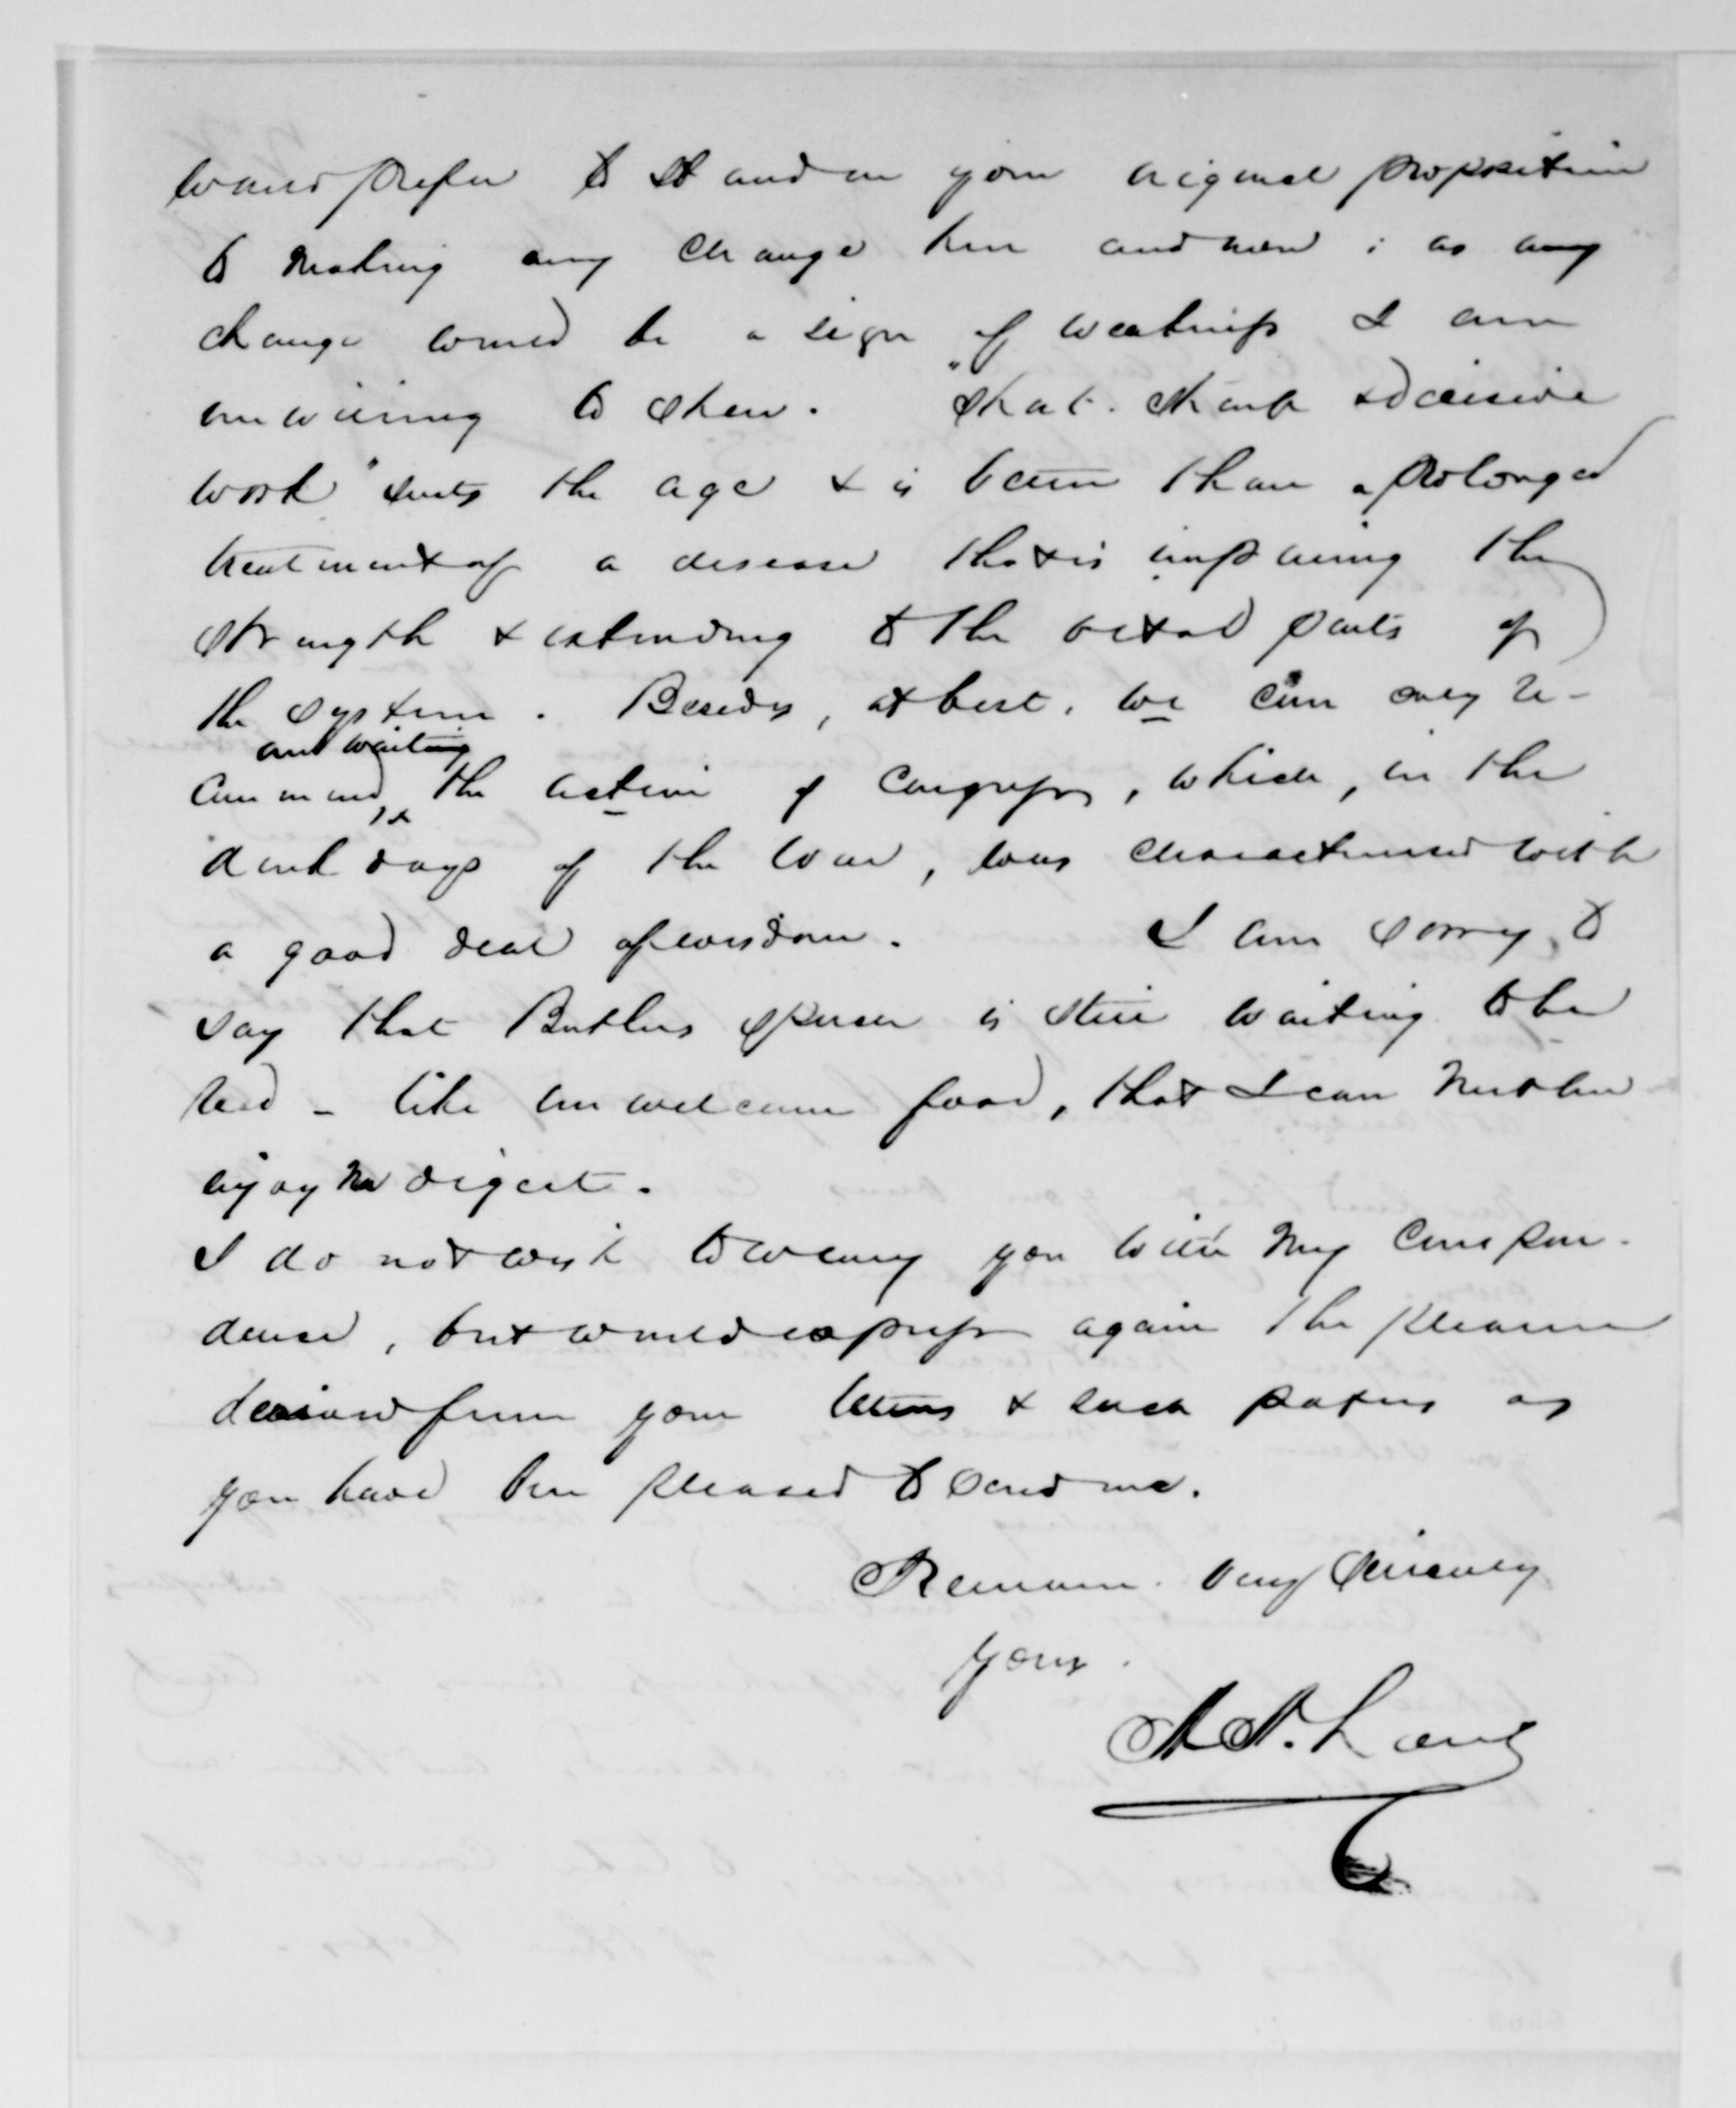 would prefer to stand on your original proposition
to making any change here and now; as any
change would be a sign of weakness I am
unwilling to show. "Short. sharp & decisive
work" suits the age & is better than a prolonged
treatment of a disease that is impairing the
strength & extending to the vital parts of
the system. Besides, at best, we can only re-
and waiting
commend, the action of Congress, which, in the
dark days of the war, was characterized with
a good deal of wisdom. I am sorry to
say that Butlers speech is still waiting to be
read - like unwelcome food, that I can neither
enjoy nor digest.
I do not wish to weary you with my correspon-
dence, but would express again the pleasure
derived from your letters & such papers as
you have been pleased to send me.
Remain. Very Sincerely
Yours.